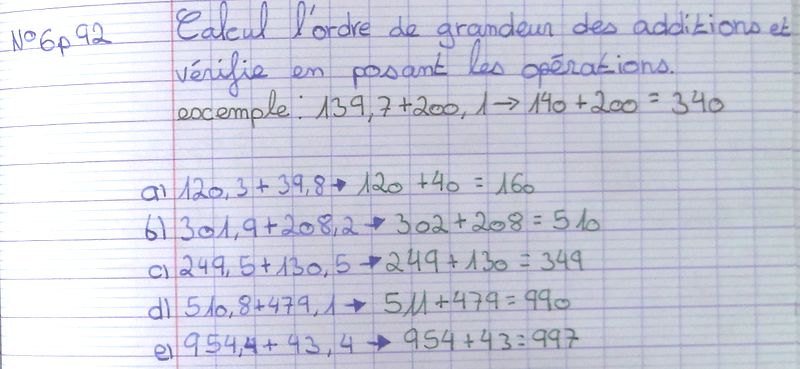 N°6p92 Calcul l'ordre de grandeur des additions et
vérifie en posant les opérations.
excemple : 139,7+200,1→140+200=340
a) 120,3+39,8→120+40=160
b) 301,9+208,2→302+208=510
c) 249,5+130,5→249+130=349
d) 510,8+479,1→511+479=990
e) 954,4+43,4→954+43=997